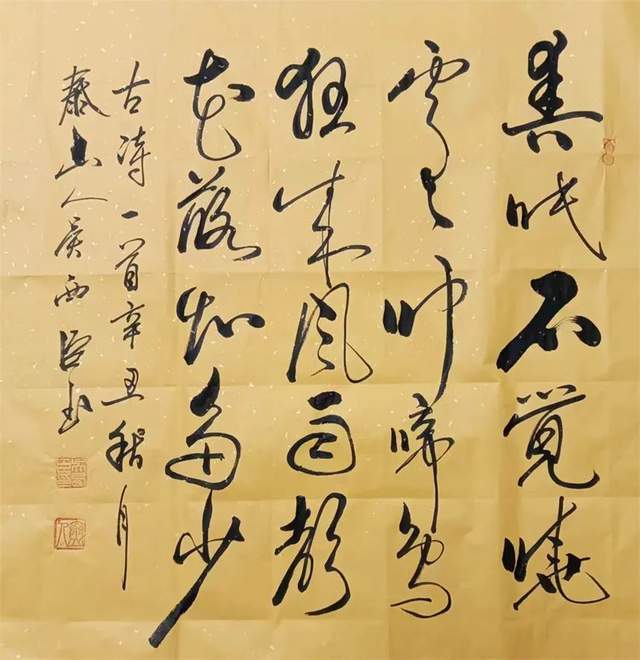 春眠不覺曉
處々聞啼鳥
夜來風雨聲
花落知多少
古詩一首辛丑月
泰山人西书